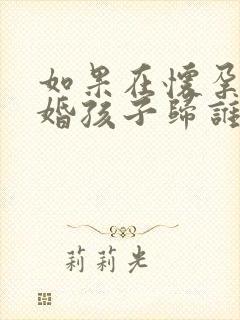 如果在懷孕
婚孩子歸誰
莉莉光